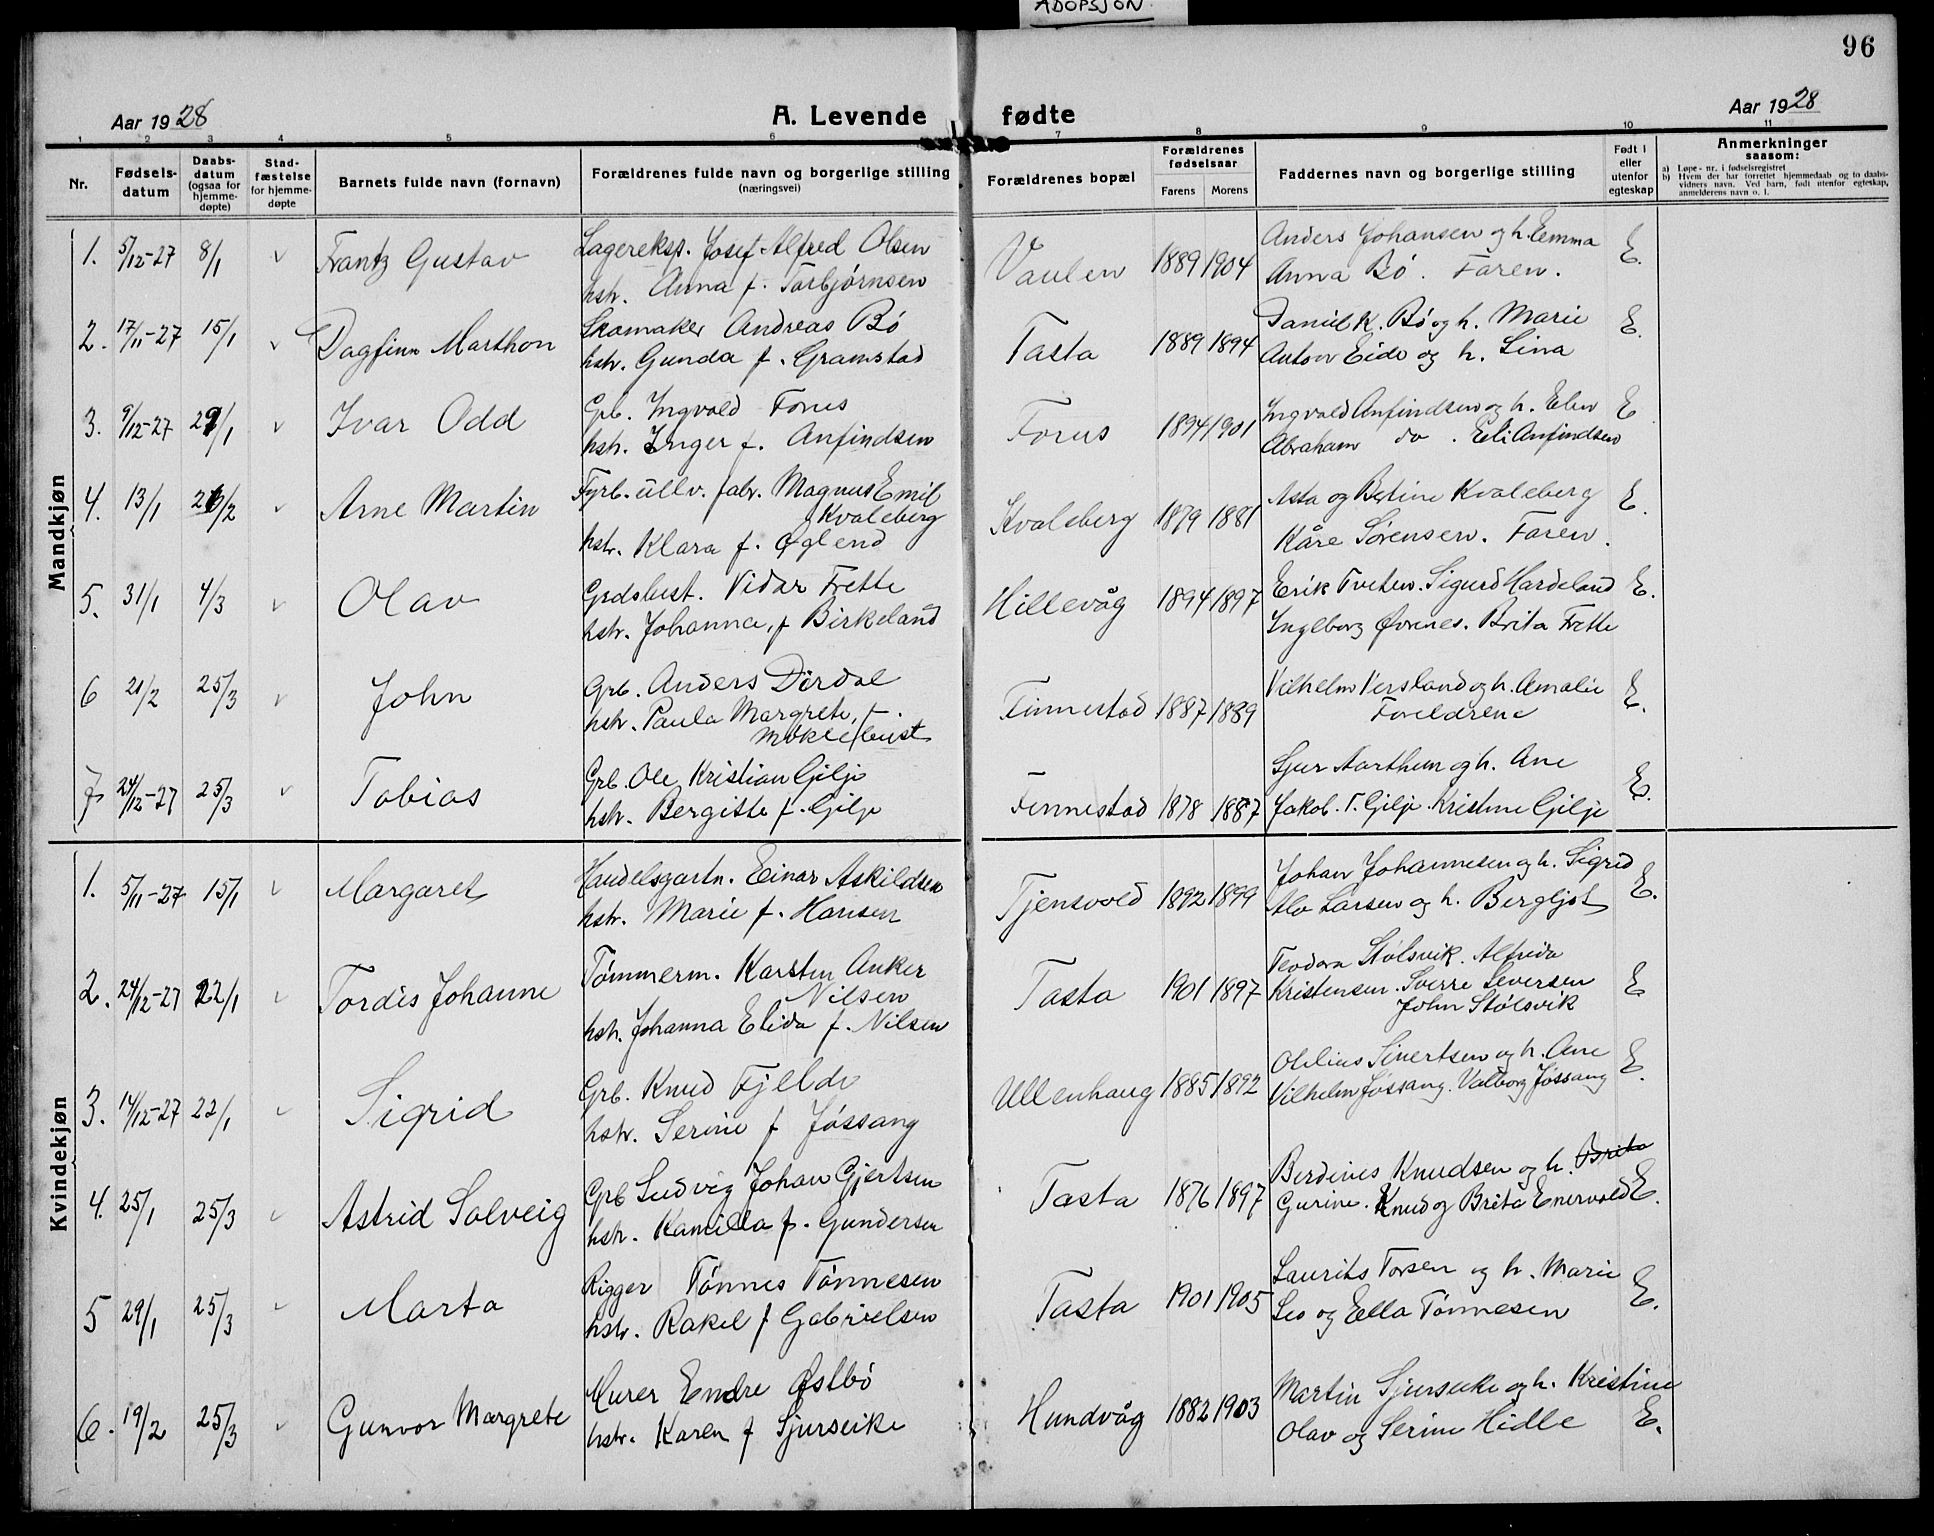 ADOPSJON
96
Aar 1928 A. Levende fødte Aar 1928
1 2 3 4 5 6 7 8 9 10 11
Nr. Fødsels-datum Daabs-datum (ogsaa for hjemme-døpte) Stad-fæstelse for hjemme-døpte Barnets fulde navn (fornavn) Forældrenes fulde navn og borgerlige stilling (næringsvei) Forældrenes bopæl Forældrenes fødselsaar Farens Morens Faddernes navn og borgerlige stilling Født i eller utenfor egteskap Anmerkninger saasom:
a) Løpe-nr. i fødselsregistret
b) Hvem der har forrettet hjemmedaab og to daabs-vidners navn. Ved barn, født utenfor egteskap, anmelderens navn o. l.
Mandkjøn
1. 5/12-27 8/1 v Frantz Gustav Lagereksp. Josef Alfred Olsen Vaulen 1889 1904 Anders Johansen og h. Emma E.
hstr. Anna f. Torbjørnsen Anna Bø. Faren.
2. 17/11-27 15/1 v Dagfinn Marthon Skomaker Andreas Bø Tasta 1889 1894 Daniel K. Bø og h. Marie E.
hstr. Gunda f. Gramstad Anton Eide og h. Lina
3. 9/12-27 29/1 v Ivar Odd Grb. Ingvald Forus Forus 1894 1901 Ingvald Anfindsen og h. Elen E
hstr. Inger f. Anfindsen Abraham do. Eli Anfindsen
4. 13/1 26/2 v Arne Martin Fyrb. ullv. fabr. Magnus Emil Kvaleberg Kvaleberg 1879 1881 Asta og Bertine Kvaleberg E.
hstr. Klara f. Øglend Kåre Sørensen. Faren.
5. 31/1 4/3 v Olav Grdsbest. Vidar Frette Hillevåg 1894 1897 Erik Tveten. Sigurd Hardeland E.
hstr. Johanna, f Birkeland Ingeborg Øvrenes. Brita Frette
6 21/2 25/3 v John Grb. Anders Dirdal Finnestad 1887 1889 Vilhelm Versland og h. Amalie E.
hstr. Paula Margrete, f. Møklebust Foreldrene
7 24/12-27 25/3 v Tobias Grb. Ole Kristian Gilje Finnestad 1878 1887 Sjur Aarthun og h. Ane E.
hstr. Bergitte f. Gilje Jakob T. Gilje. Kristine Gilje
Kvindekjøn
1. 5/11-27 15/1 v Margaret Handelsgartn. Einar Askildsen Tjensvold 1892 1899 Johan Johannesen og h. Sigrid E.
hstr. Marie f. Hansen Alv Larsen og h. Bergljot
2. 24/12-27 22/1 v Tordis Johanne Tømmerm. Karsten Anker Nilsen Tasta 1901 1897 Teodora Stølsvik. Alfrida E
hstr. Johanna Elida f. Nilsen Kristensen. Sverre Seversen John Stølsvik
3. 14/12-27 22/1 v Sigrid Grb. Knud Fjelde Ullenhaug 1885 1892 Olelius Sivertsen og h. Ane E.
hstr. Serine f Jøssang Vilhelm Jøssang. Valborg Jøssang
4. 25/1 25/3 v Astrid Solveig Grb Ludvig Johan Gjertsen Tasta 1876 1897 Berdines Knudsen og h. Brita
hstr. Kamilla f. Gundersen Gurine. Knud og Brita Enervold E.
5 29/1 25/3 v Marta Rigger Tønnes Tønnesen Tasta 1901 1905 Laurits Torsen og h. Marie E.
hstr. Rakel f Gabrielsen Leo og Ella Tønnesen
6. 19/2 25/3 v Gunvor Margrete Murer Endre Østbø Hundvåg 1882 1903 Martin Sjurseike og h. Kristine E.
hstr. Karen f Sjurseike Olav og Serine Hidle